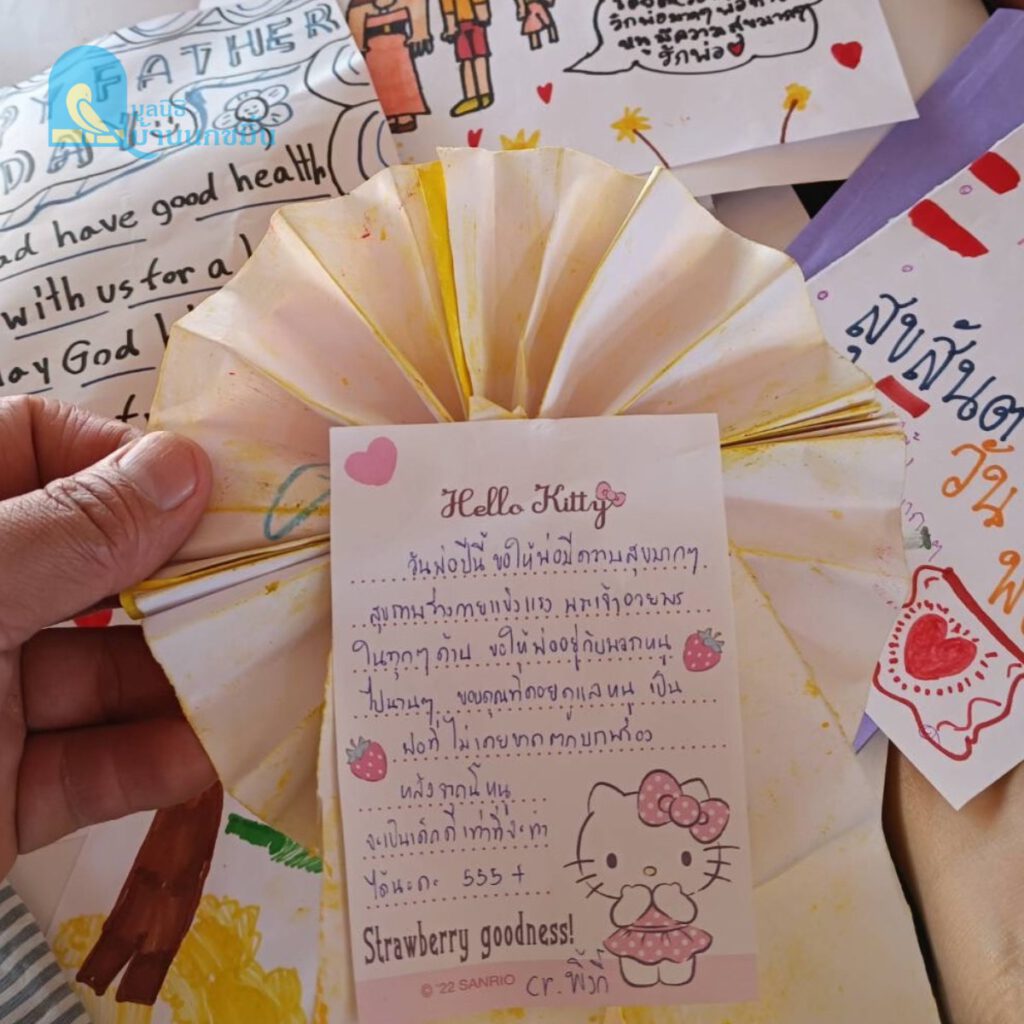 มูลนิธิ
บ้านนกขมิ้น
FATHER
DAY
ad have good health
with us for a
ay God
รักพ่อมากๆ
หนูมีความสุขมากๆ
รักพ่อ
สุขสันต
วัน
พ
Hello Kitty
วันพ่อปีนี้ ขอให้พ่อมีความสุขมากๆ
สุขภาพร่างกายแข็งแรง พระเจ้าอวยพร
ในทุกๆ ด้าน ขอให้พ่ออยู่กับพวกหนู
ไปนานๆ ขอบคุณที่คอยดูแลหนู เป็น
พ่อที่ไม่เคยขาดตกบกพร่อง
หลังจากนี้หนู
จะเป็นเด็กดีเท่าที่จะทำ
ได้นะคะ 555+
Strawberry goodness!
© '22 SANRIO
cr. พิ้งกี้